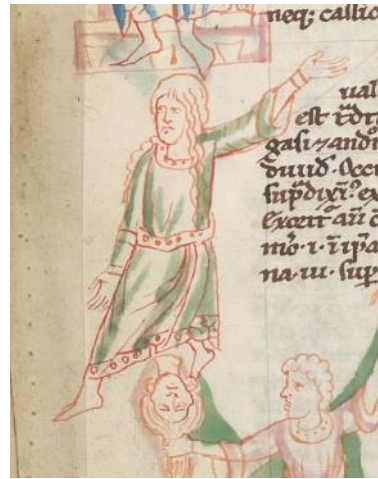 neq; callic
ual
est
gasi⁊andr
diuid̄. Occi
sup̄dixi᷒. ex
exorit̄ aū c
mō·i·
na·iii·sup